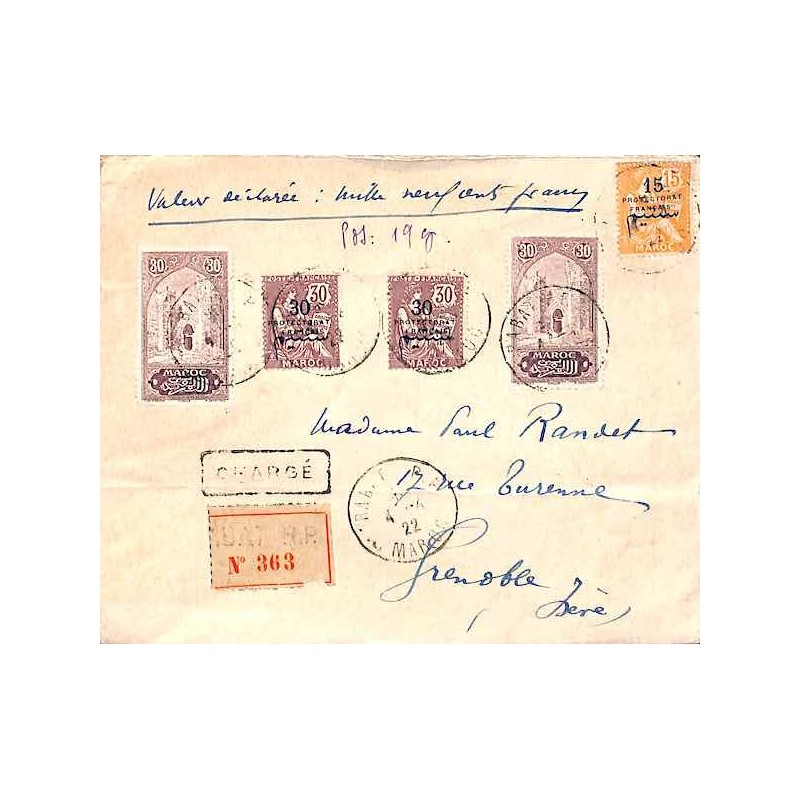 Valeur déclarée : mille neuf cents francs
Pds : 19 gr.
15 15
PROTECTORAT
FRANÇAIS
MAROC
30 30
MAROC
POSTE FRANÇAISE
30 30
PROTECTORAT
FRANÇAIS
MAROC
POSTE FRANÇAISE
30 30
PROTECTORAT
FRANÇAIS
MAROC
30 30
MAROC
Madame Paul Randet
17 rue Turenne
Grenoble
Isère
CHARGÉ
RABAT R.P.
N° 363
4 -4
22
MAROC